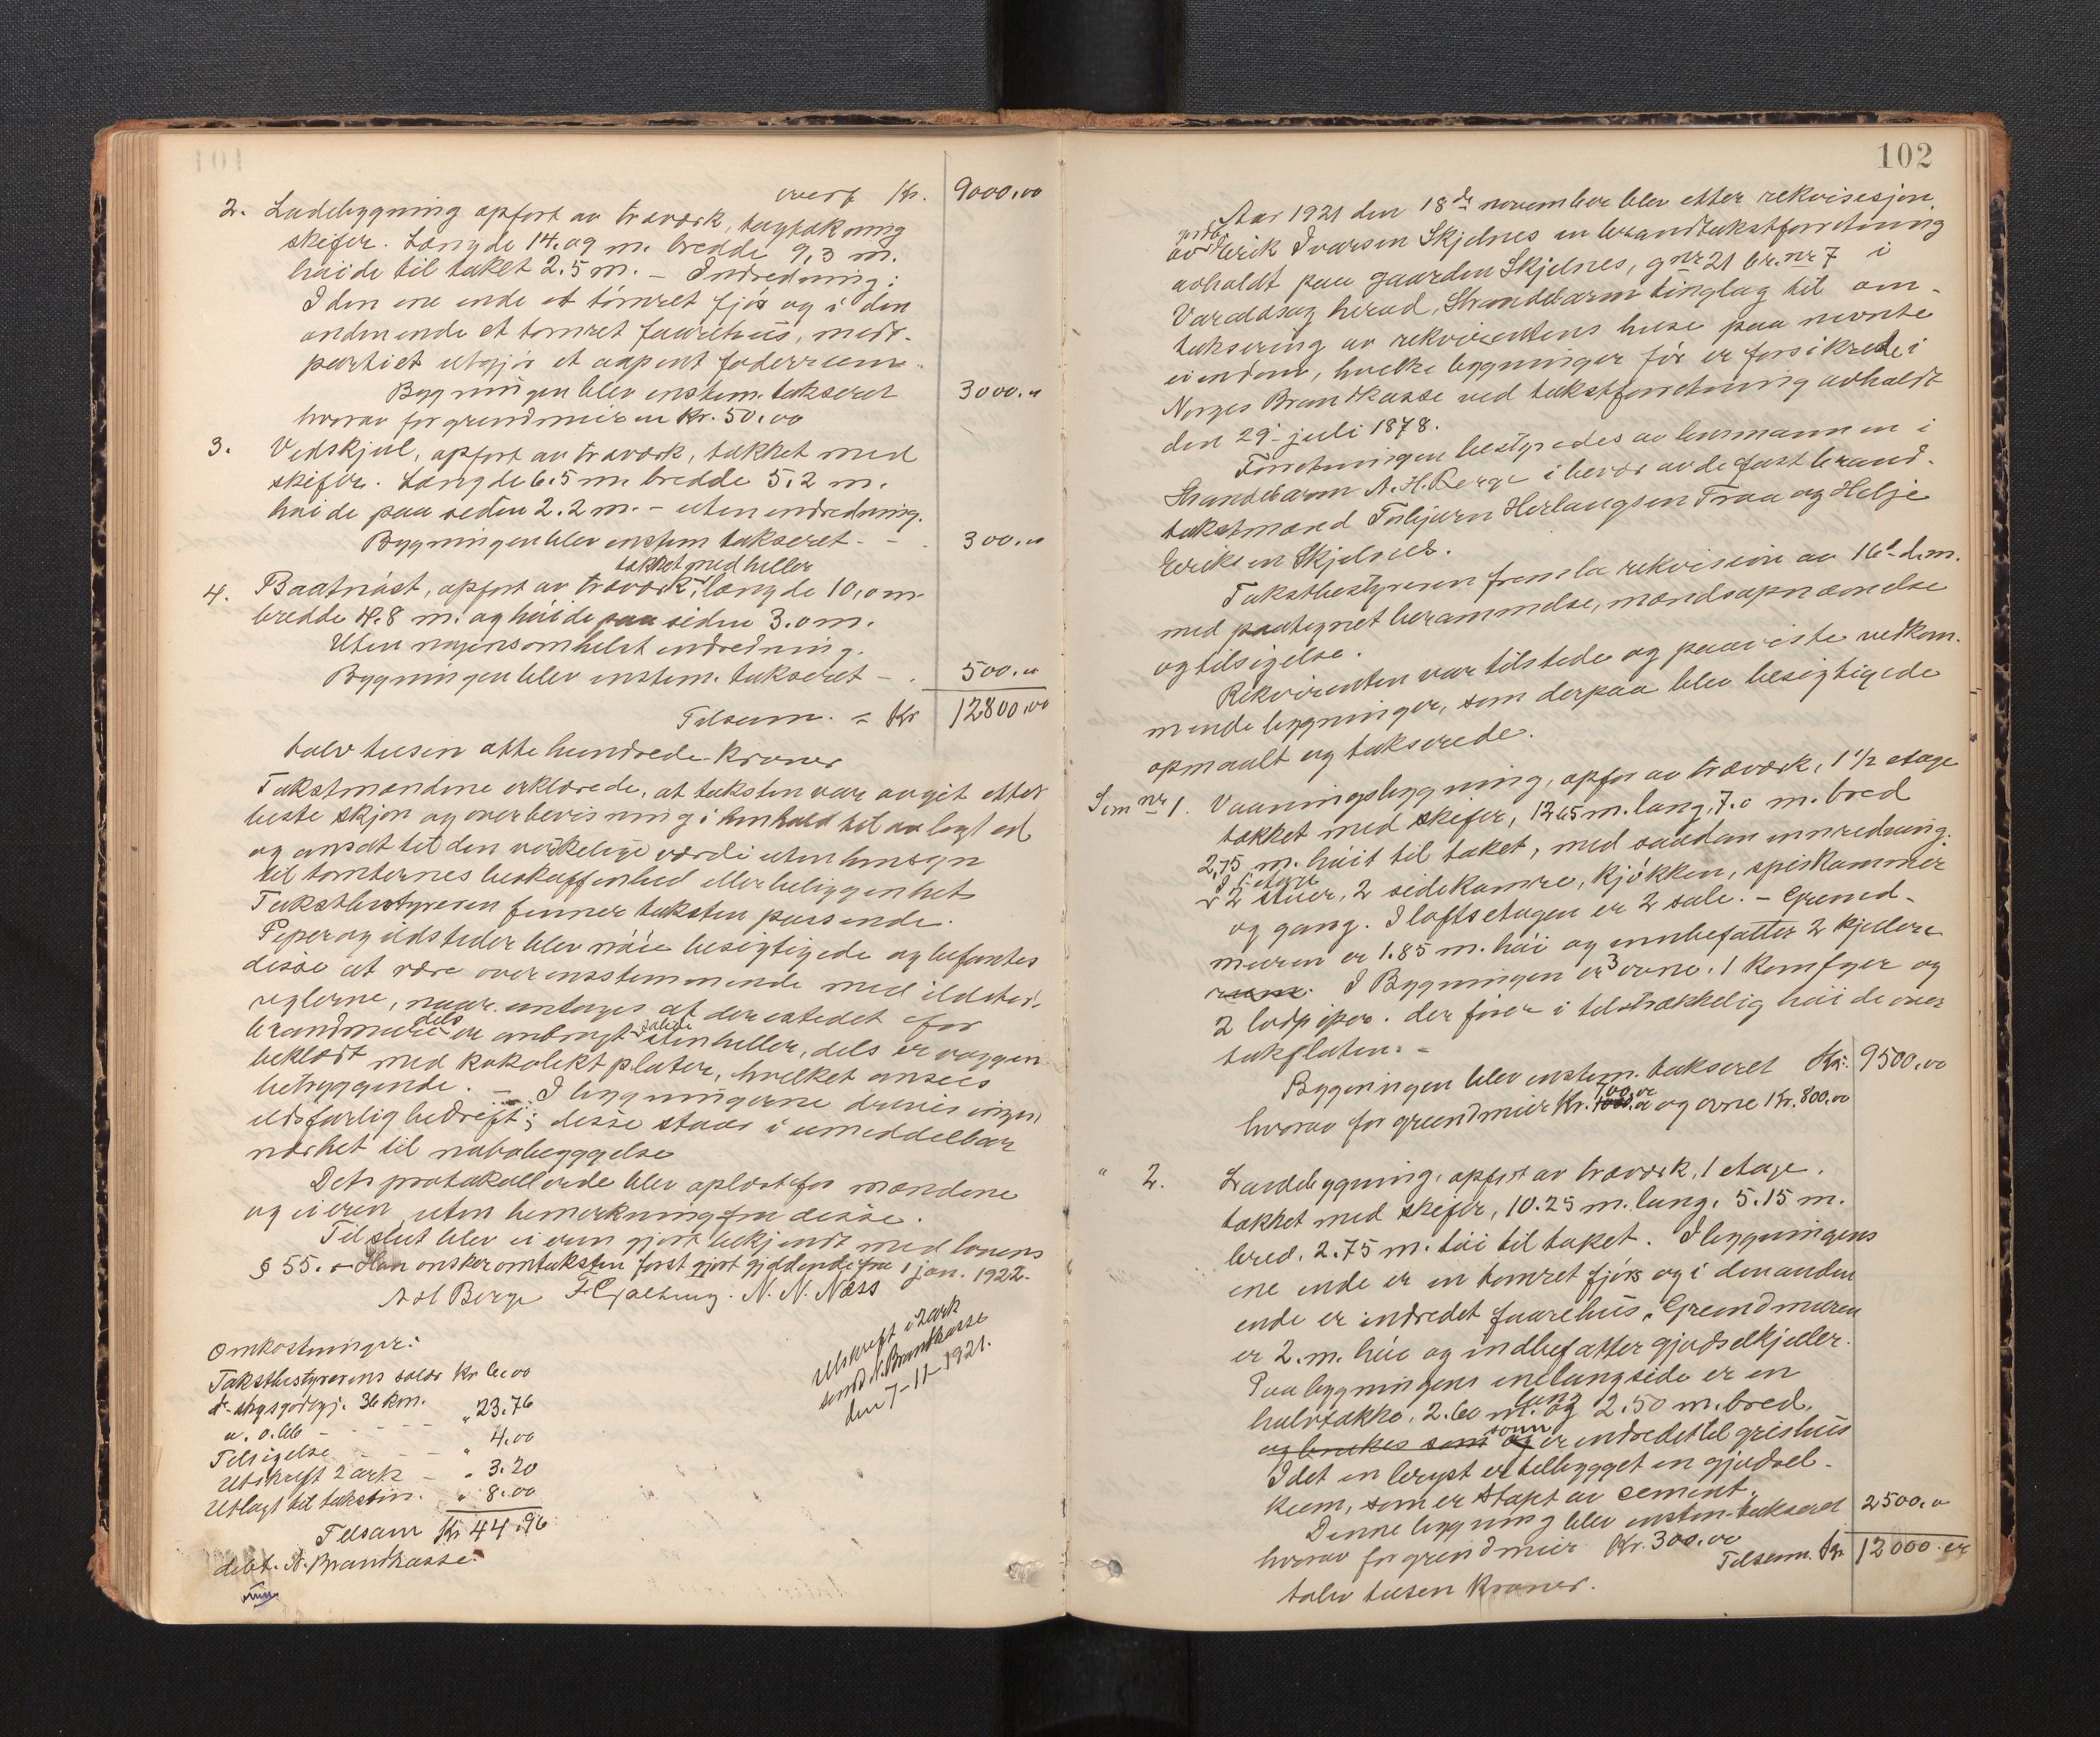 overf Kr. 9000.00
2. Ladebygning opført av træværk, tagtækning
skifer. Længde 14.09 m. bredde 9,3 m.
høide til taket 2.5 m. – Indredning:
I den ene ende et tømret fjøs og i den
anden ende et tømret faarehus, midt-
partiet utgjør et aapent foderrum.
Bygningen blev enstem. takseret 3000.00
hvorav for grundmuren Kr. 50.00
3. Vedskjul, opført av træværk, tækket med
skifer. Længde 6.5 m. bredde 5.2 m.
høide paa siden 2.2 m. – uten indredning.
Bygningen blev enstem takseret - - 300.00
tækket med heller
4. Baatnøst, opført av træværk, længde 10,0 m
bredde 4.8 m. og høide paa siden 3.0 m.
Uten nogensomhelst indredning.
Bygningen blev enstem. takseret - . 500.00
Tilsum. = Kr 12800.00
tolv tusen otte hundrede Kroner
Takstmændene erklærede, at taksten var avgit efter
beste skjøn og overbevisning i henhold til avlagt ed
og ansat til den virkelige værdi uten hensyn
til tomternes beskaffenhed eller beliggenhet
Takstbestyreren finner taksten passende.
Piper og ildsteder blev nøie besigtigede og befantes
disse at være overensstemmende med ildsted-
reglerne, naar undtages at der istedet for
brandmure dels er anbragt solide stenheller, dels er væggen
beklædt med kokolektplater, hvilket ansees
betryggende. – I bygningerne drives ingen
ildsfarlig bedreft; disse staar i umeddelbar
nærhet til nabobebyggelse
Det protokollerde blev oplæst for mændene
og eieren uten bemerkning fra disse.
Til slut blev eieren gjort bekjendt med lovens
§ 55. – Han ønsker omtaksten først gjort gjeldende fra 1 jan. 1922.
A H Berge N. N. Næss
Utskrift i 2 ark
sendt N. Brandkasse
den 7-11-1921.
Omkostninger:
Takstbestyrerens salær Kr 6.00
do skysgodtgj. 36 km. " 23.76
Tilsigelse - - " 4.00
Utskrift 2 ark - " 3.20
Utlagt til takstm. " 8.00
Tilsam Kr 44.96
debt. N. Brandkasse.
102
Aar 1921 den 18de november blev efter rekvisisjon
av Erik Ivarsen Skjelnes en brandtakstforretning
avholdt paa gaarden Skjelnes, gnr 21 br.nr 7 i
Varaldsøy herad, Strandebarm tinglag til om-
taksering av rekvirentens huse paa nevnte
eiendom, hvilke bygninger før er forsikrede i
Norges Brandkasse ved takstforretning avholdt
den 29. juli 1878.
Forretningen bestyredes av lensmannen i
Strandebarm A. H. Berge i overvær av de fast brand-
takstmænd Torbjørn Herlaugsen Traa og Helje
Eriksen Skjelnes.
Takstbestyreren fremla rekvisision av 16d d.m.
med paategnet berammelse, mændsopnævnelse
og tilsigelse.
Rekvirenten var tilstede og paaviste vedkom-
mende bygninger, som derpaa blev besigtigede
opmaalt og takserede.
Som nr 1. Vaaningsbygning, opført av træværk, 1 1/2 etage
tækket med skifer, 12.65 m. lang, 7.0 m. bred
2,75 m. høit til taket, med saadan innredning:
I 1 etage
er 2 stuer, 2 sidekamre, kjøkken, spiskammer
og gang. I loftsetagen er 2 sale. – Grund-
muren er 1.85 m. høi og innbefatter 2 kjellere
rum. I Bygningen er 3 ovne, 1 Komfyr og
2 lodpiper. der fører i tilstrækkelig høide over
takflaten. –
Bygningen blev enstem. takseret Kr: 9500,00
hvorav for grundmur Kr. 700.00 og ovne Kr. 800.00
" 2. Laudebygning, opført av træværk, 1 etage.
tækket med skifer, 10.25 m. lang, 5.15 m.
bred, 2.75 m. høi til taket. I bygningens
ene ende er en tømret fjøs og i den anden
ende er indredet faarehus. Grundmuren
er 2. m. høi og indbefatter gjødselkjeller.
Paa bygningens ene langside er en
halvtække, 2.60 m. lang og 2.50 m. bred.
og brukes som som er indredet til grishus
I det en bryst er tilbygget en gjødsel-
kum, som er støpt av cement.
Denne bygning blev enstem. takseret 2500.00
hvorav for grundmur Kr. 300.00
Tilsum. Kr 12000.00
tolv tusen Kroner.